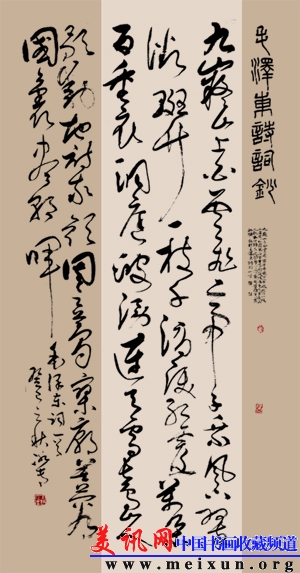 毛澤東詩詞鈔
九嶷山上白雲飛帝子乘風下翠
微斑竹一枝千滴淚紅霞萬朵
百重衣洞庭波涌連天雪長島人
歌動地詩我欲因之夢寥廓芙蓉
國裏盡朝暉
毛澤東詞一首
癸巳之秋
美讯网 中国书画收藏频道
www.meixun.org